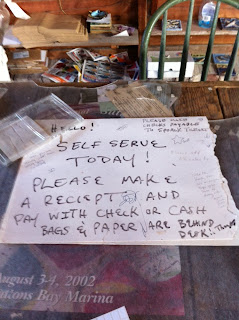 HELLO!
PLEASE MAKE
CHECKS PAYABLE
TO
SELF SERVE
TODAY!
PLEASE MAKE
A RECIEPT AND
PAY WITH CHECK OR CASH
BAGS & PAPER ARE BEHIND
DESK!!
August 3-4, 2002
Bay Marina